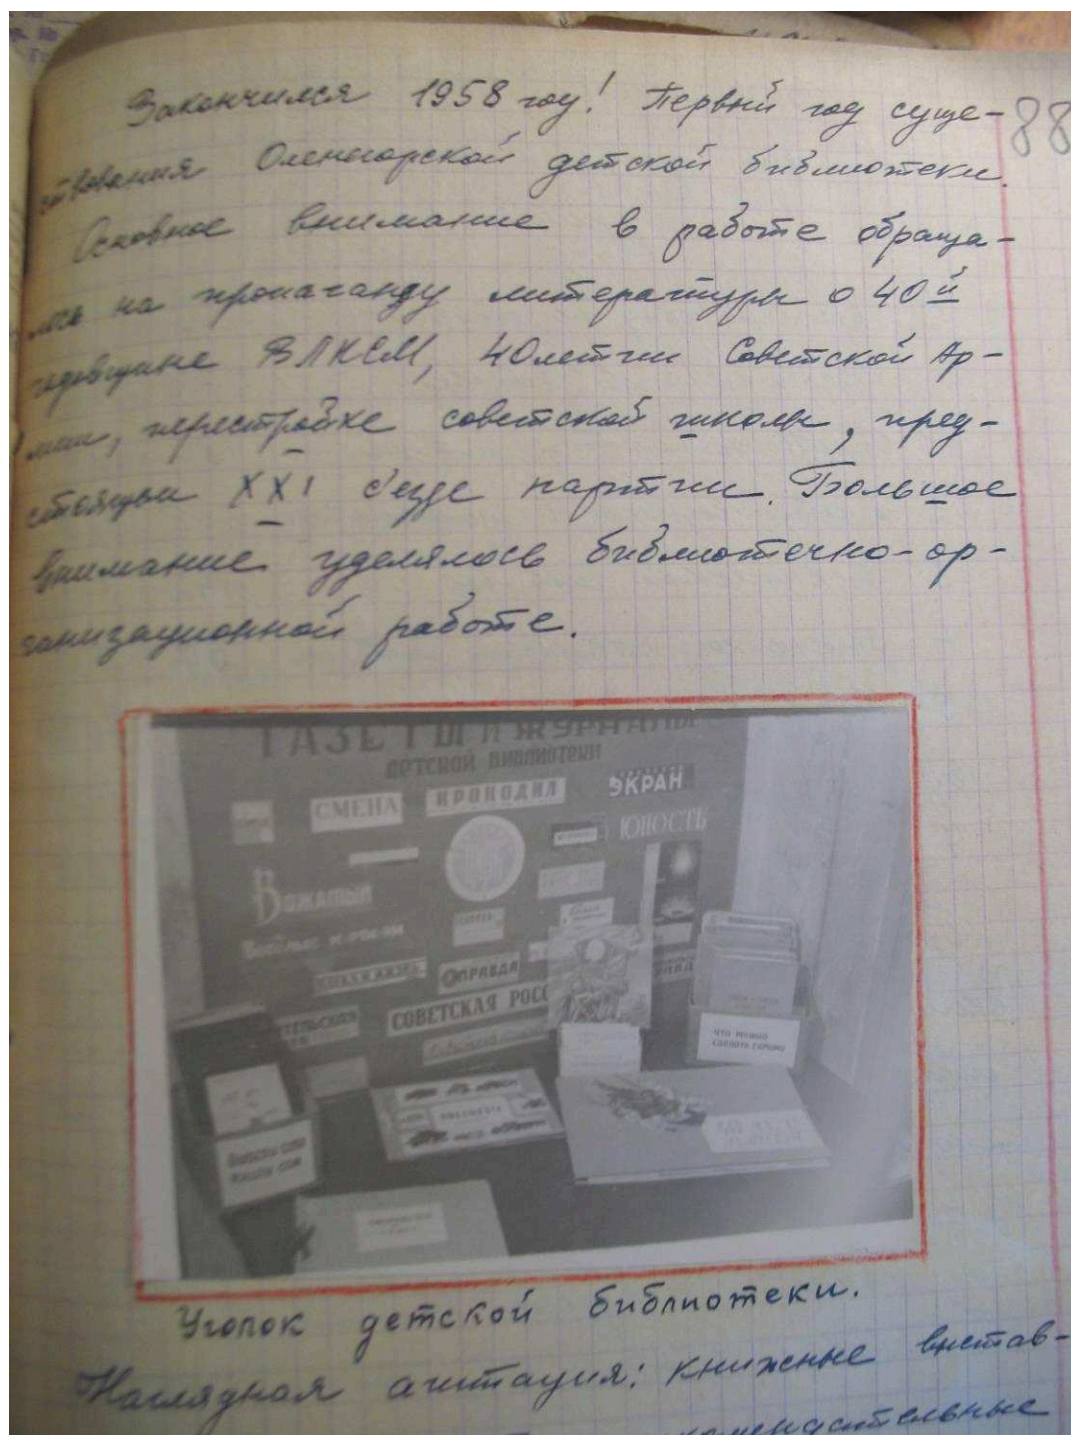 88
Закончился 1958 год! Первый год суще-
ствования Оленегорской детской библиотеки.
Основное внимание в работе обраща-
лось на пропаганду литературы о 40й
годовщине ВЛКСМ, 40летии Советской Ар-
мии, перестройке советской школы, пред-
стоящем XXI съезде партии. Большое
внимание уделялось библиотечно-ор-
ганизационной работе.
ГАЗЕТЫ И ЖУРНАЛЫ
ДЕТСКОЙ БИБЛИОТЕКИ
СМЕНА КРОКОДИЛ ЭКРАН
ЮНОСТЬ
Вожатый
Весёлые картинки
ПРАВДА
СОВЕТСКАЯ РОСС
ЧТО МОЖНО
СДЕЛАТЬ САМОМУ
Уголок детской библиотеки.
Наглядная агитация: книжные выстав-